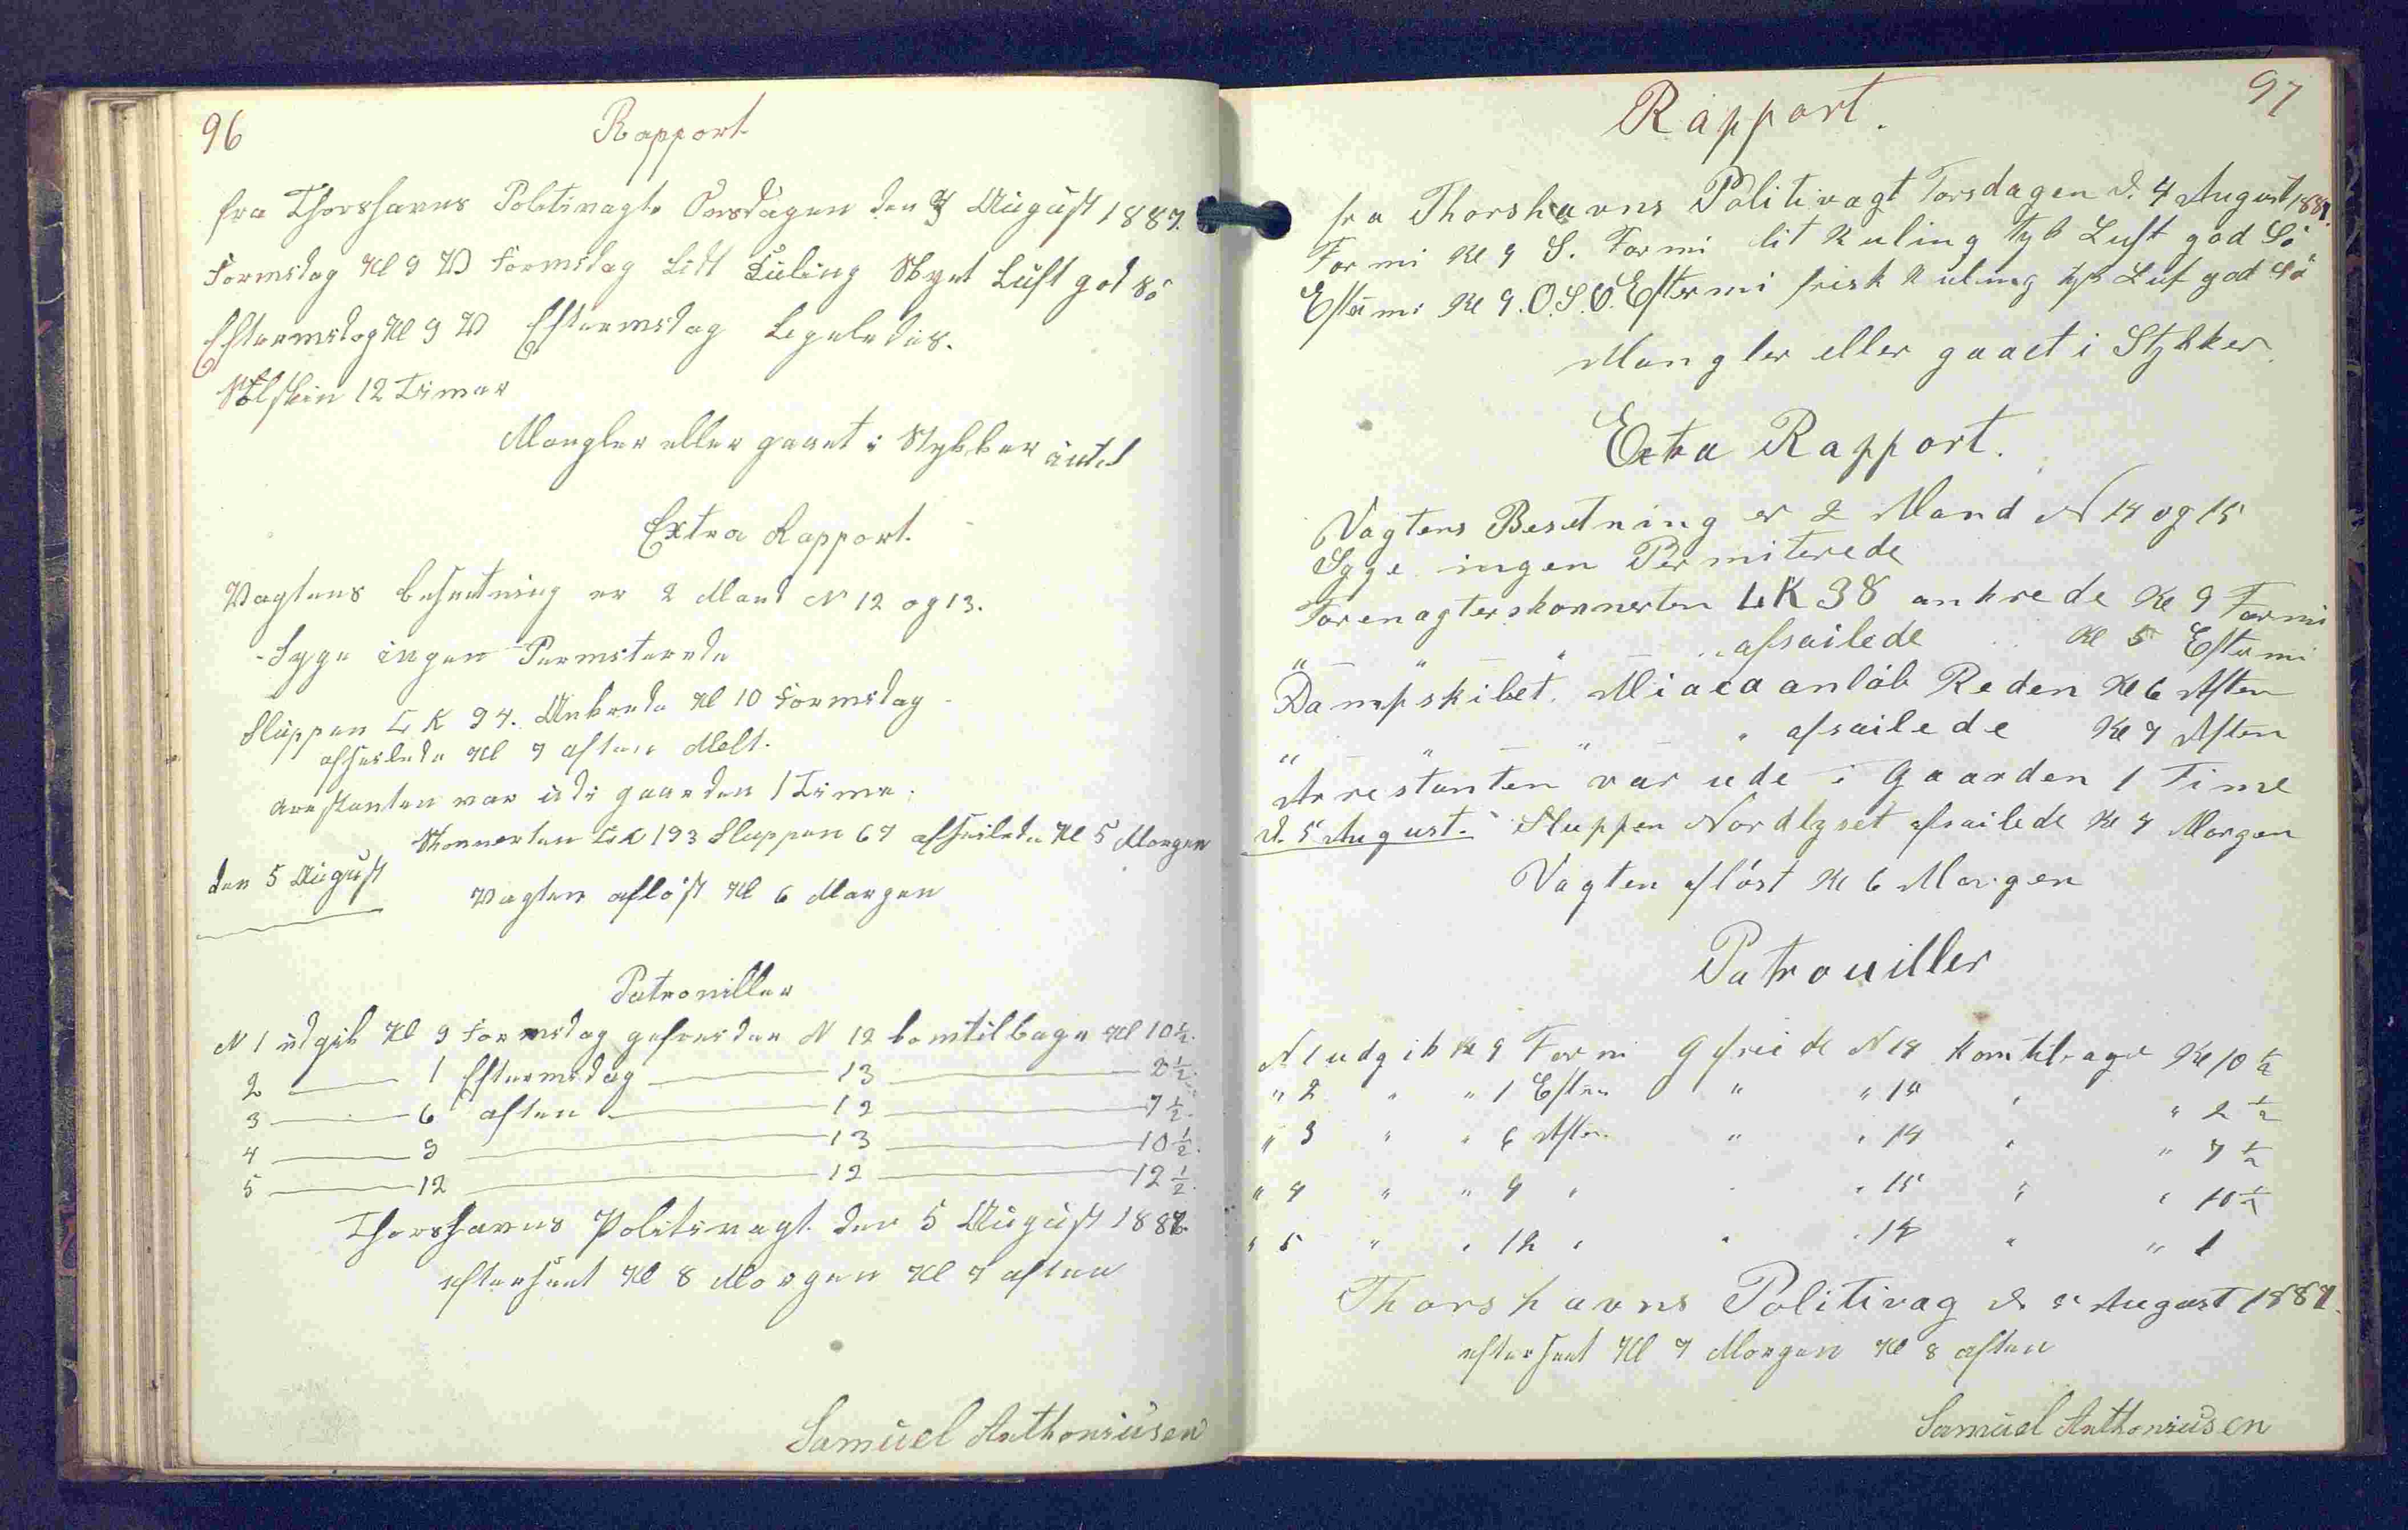 96
Rapport
fra Thorshavns Politivagt Onsdagen den 3 August 1887.
Formidag Kl 9 V Formidag Lidt Kuling Skyet Luft god Sö
Eftermidag Kl 9 V Eftermidag Ligeledis.
Solskin 12 Timer
Mangler eller gaaet i Stykker intet
Extra Rapport.
Vagtens besetning er 2 Mand N 12 og 13.
Syge ingen Permiterede
Sluppen LK 94. Ankrede Kl 10 Formidag
afseilede Kl 7 aften
arestanten var udi gaarden 1 Time.
Skonnerten LK 193 Sluppen 67 afseilede Kl 5 Morgen
den 5 August
Vagten aflöst Kl 6 Morgen
Patrouiller
N 1 udgik Kl 9 Formidag geforeder N 12 komtilbage Kl 10 ½.
2 — 1 Eftermidag — 13 — 2 ½.
3 — 6 aften — 12 — 7 ½.
4 — 9 — 13 — 10 ½.
5 — 12 — 12 — 12 ½.
Thorshavns Politivagt den 5 August 1887.
efterseet Kl 8 Morgen Kl 7 aften
Samuel Anthoniusen
97
Rapport.
fra Thorshavns Politivagt Torsdagen d. 4 August 1887.
Formi Kl 9 S. Formi lit Kuling tyk Luft god Sö
Eftermi Kl 9. O.S.O. Eftermi frisk Kuling tyk Luf god Sö
Mangler eller gaaet i Stykker
Exta Rapport.
Vagtens Besetning er 2 Mand N 14 og 15
Syge ingen Permiterede
Forenagterskonnerten LK 38 ankrede Kl 9 Formi
" — " — " — " afsailede Kl 5 Eftermi
Dampskibet. Miaca anlöb Reden Kl 6 Aften
" — " — " — " afsailede Kl 7 Aften
Arrestanten var ude i Gaarden 1 Time
d. 5 August. Sluppen Nordlyset afsailede Kl 4 Morgen
Vagten aflöst Kl 6 Morgen
Patrouiller
N 1 udgik Kl 9 Formi Gfreide N 14 komtilbage Kl 10 ½
" 2 " " 1 Efterm " " 15 " " 2 ½
" 3 " " 6 Aften " " 14 " " 7 ½
" 4 " " 9 " " " 15 " " 10 ½
" 5 " " 12 " " " 14 " " 1
Thorshavns Politivag d 5 August 1887.
efterseet Kl 7 Morgen Kl 8 aften
Samuel Anthoniusen